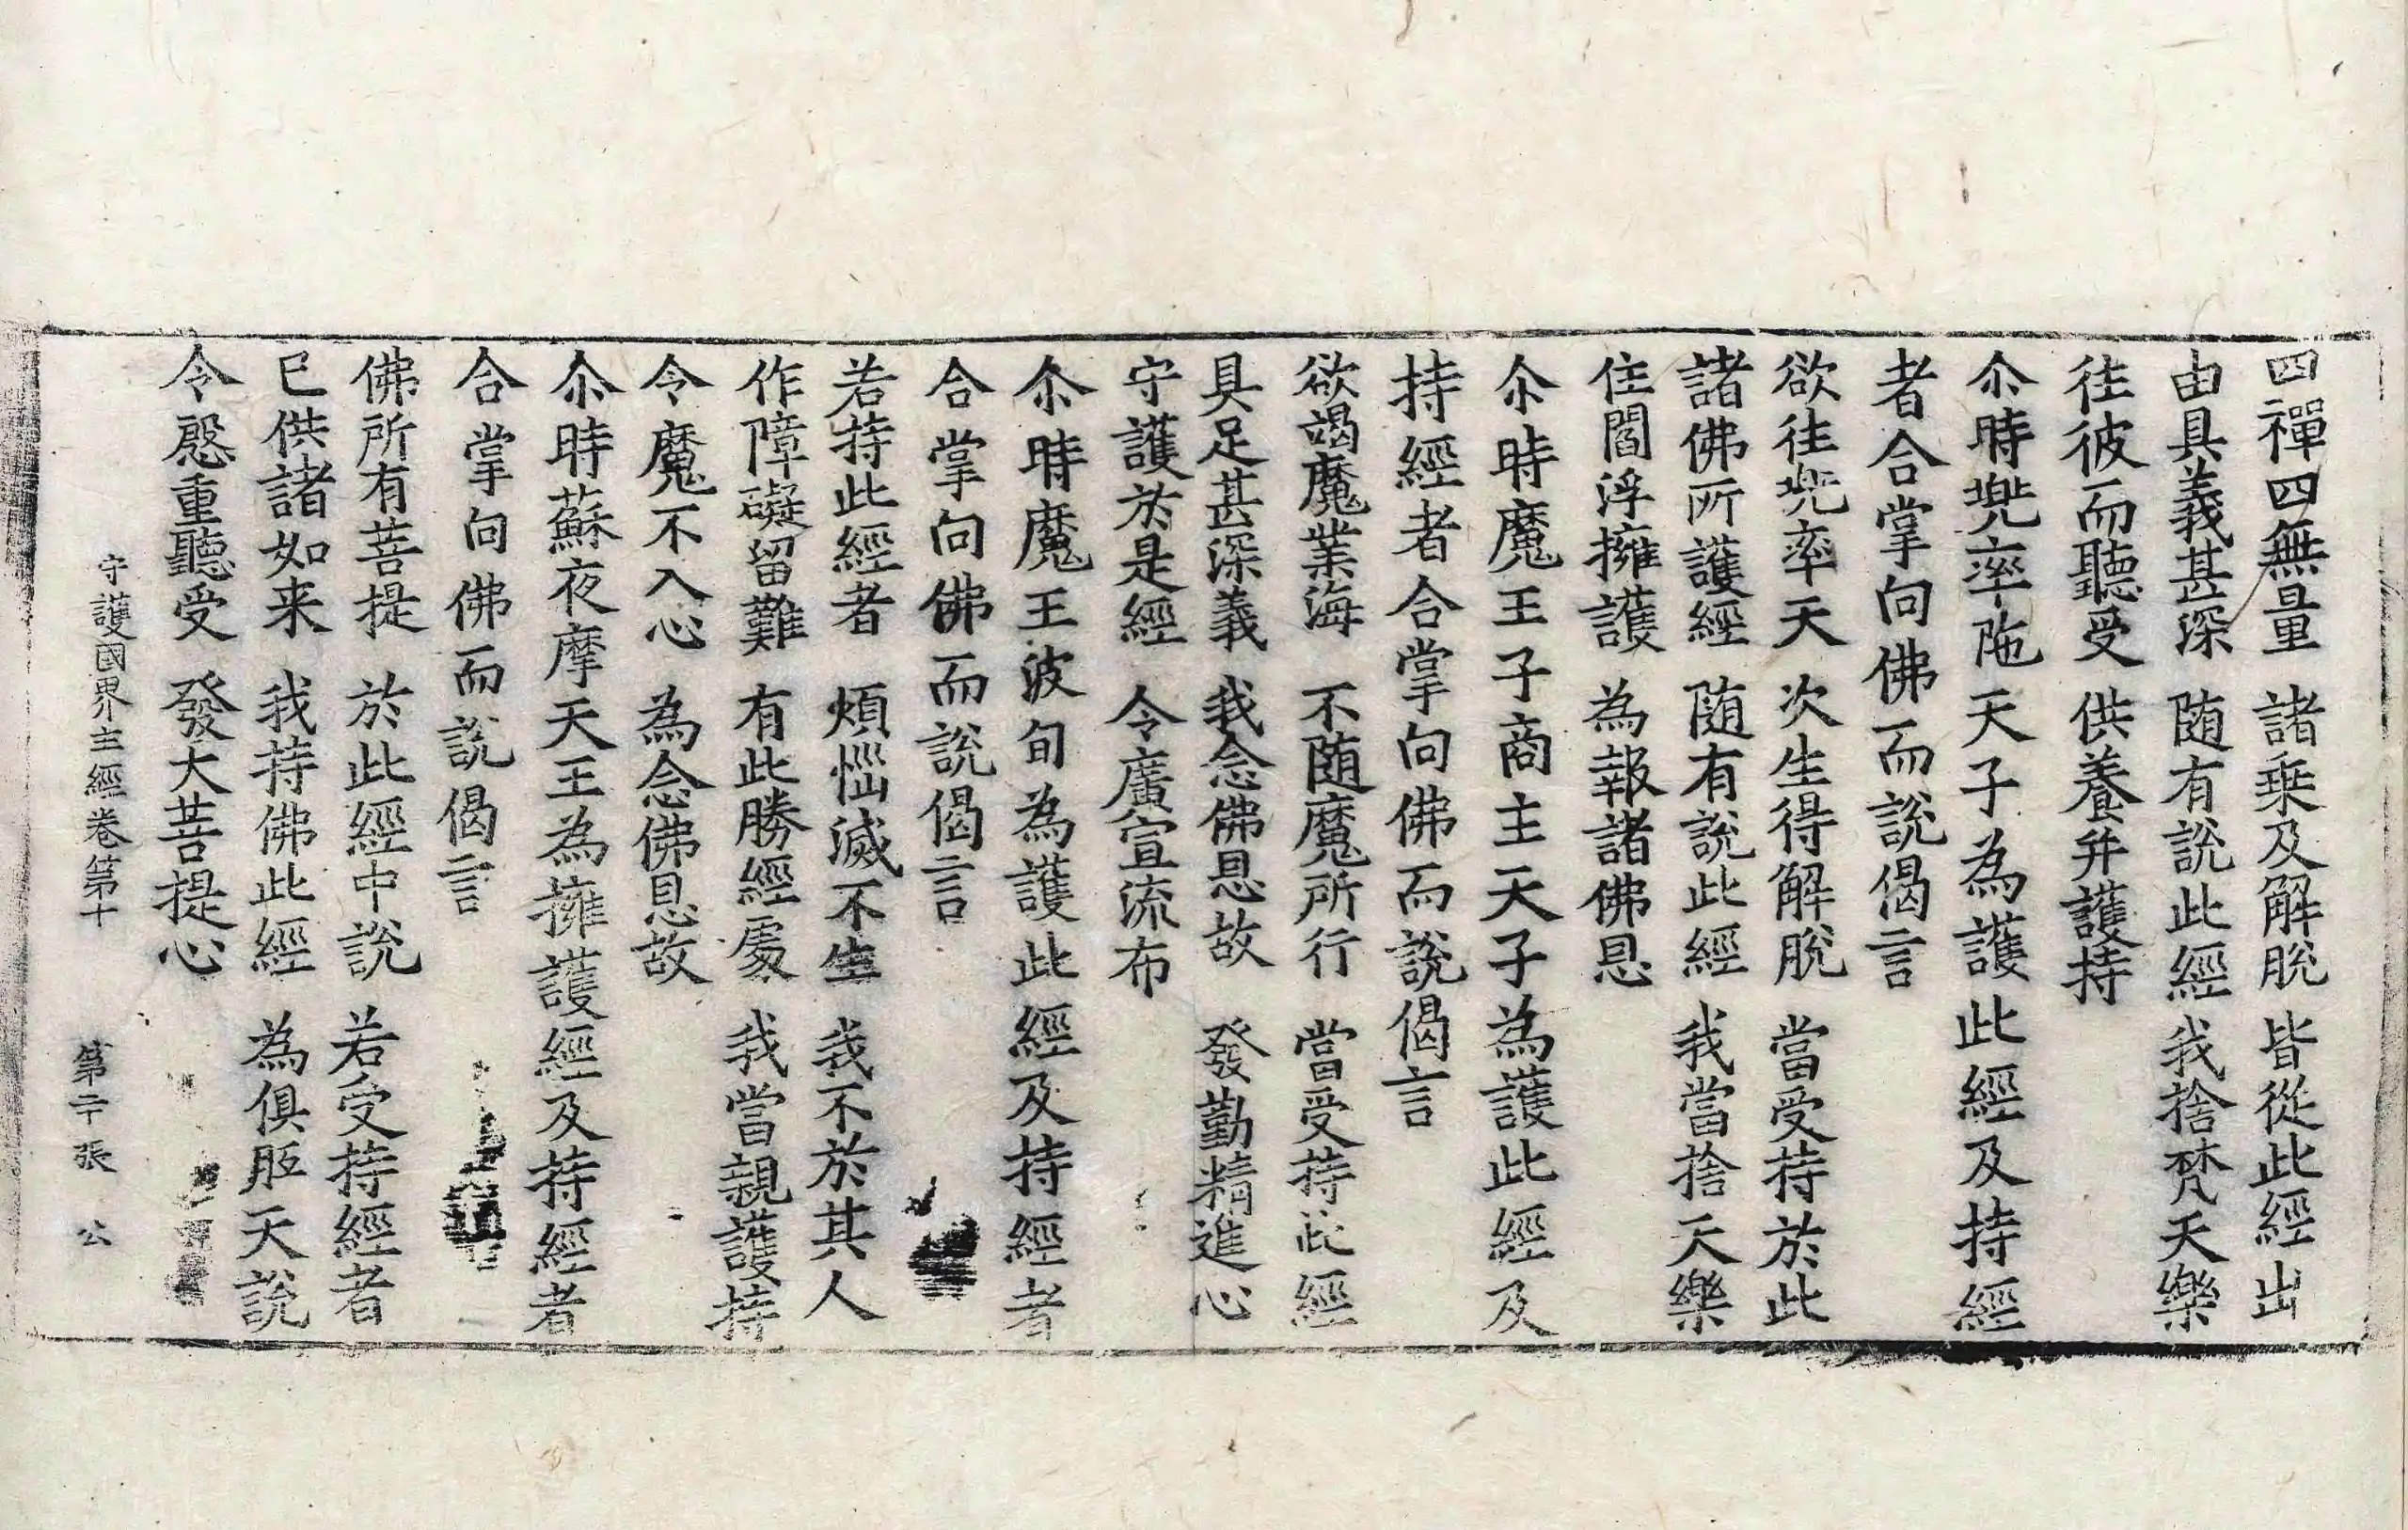 四禪四無量　諸乗及解脫　皆從此經出
由具義甚深　随有說此經　我捨梵天樂
往彼而聽受　供養并護持
尒時兠率陁天子為護此經及持經
者合掌向佛而說偈言
欲往兠率天　次生得解脫　當受持於此
諸佛所護經　随有說此經　我當捨天樂
住閻浮擁護　為報諸佛恩
尒時魔王子商主天子為護此經及
持經者合掌向佛而說偈言
欲竭魔業海　不随魔所行　當受持此經
具足甚深義　我念佛恩故　發勤精進心
守護於是經　令廣宣流布
尒時魔王波旬為護此經及持經者
合掌向佛而說偈言
若持此經者　煩惱滅不生　我不於其人
作障礙留難　有此勝經處　我當親護持
令魔不入心　為念佛恩故
尒時蘇夜摩天王為擁護經及持經者
合掌向佛而說偈言
佛所有菩提　於此經中說　若受持經者
已供諸如来　我持佛此經　為俱胝天說
令慇重聽受　發大菩提心
守護國界主經卷第十　第二十張　公